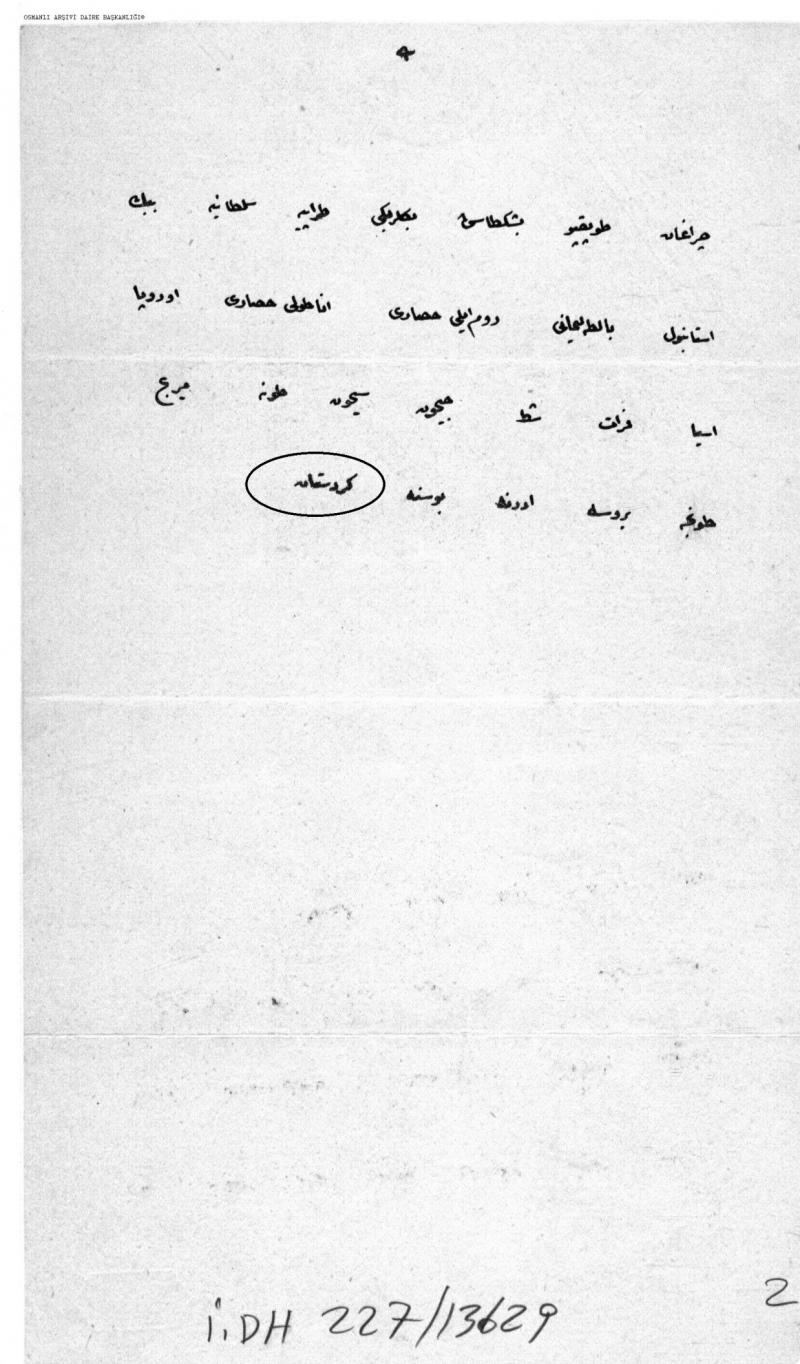 OSMANLI ARŞİVİ DAİRE BAŞKANLIĞI®
چراغان طوپقپو بشكطاش بكلربكى طرابيه سلطانيه ببك
استانبول بالطه ليمانى روم ايلى حصارى اناطولى حصارى اوروپا
اسيا فرات شط جيحون سيحون طونه ميرج
طونجه بروسه ادرنه بوسنه كردستان
İ.DH 227/13629
2